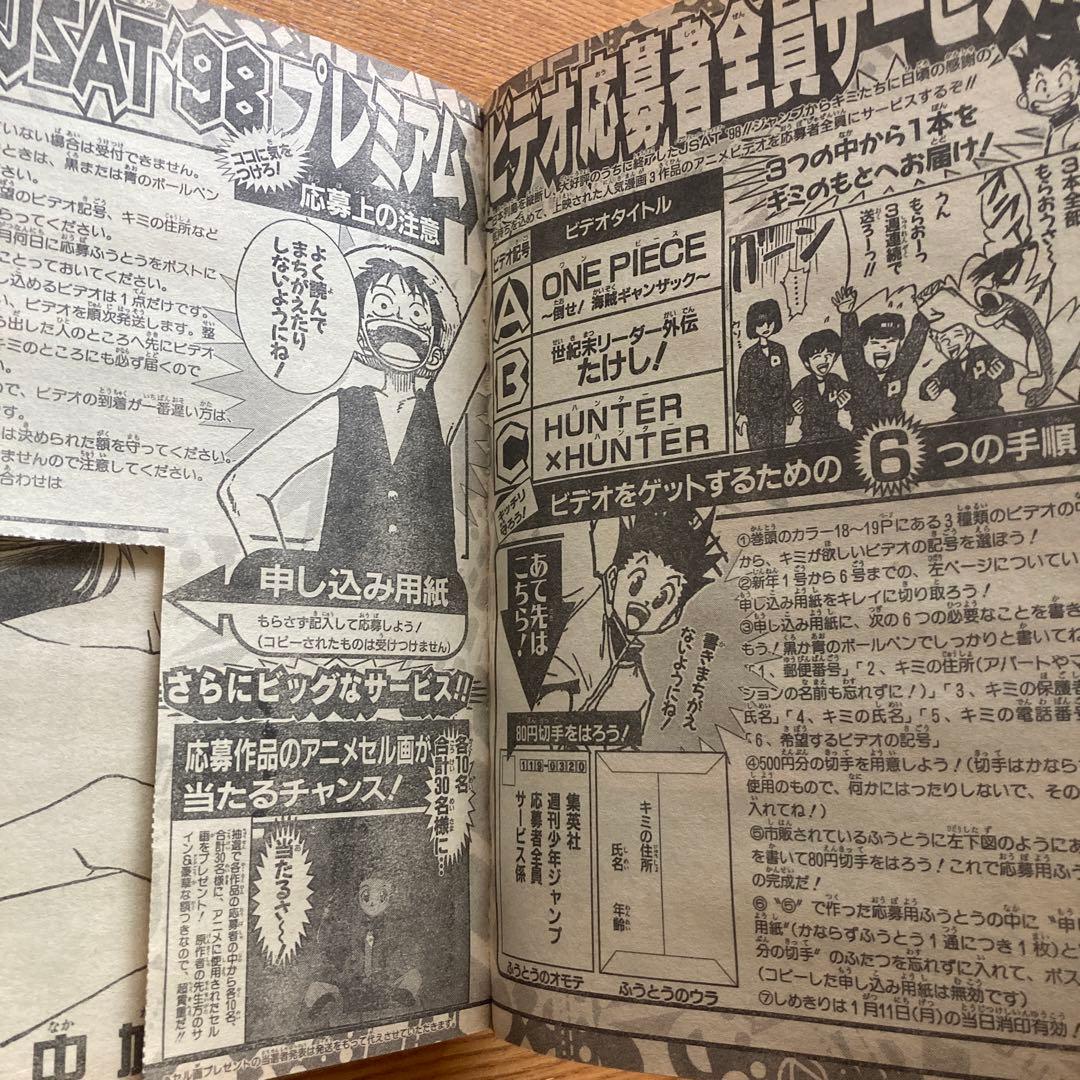 JSAT'98プレミアム
ビデオ応募者全員サービス
ココに気をつけろ!
応募上の注意
よく読んで
まちがえたり
しないようにね!
ていない場合は受付できません。
ときは、黒または青のボールペン
さい。
望のビデオ記号、キミの住所など
らってください。
月何日に応募ふうとうをポストに
ことっておいてください。
し込めるビデオは1点だけです。
、ビデオを順次発送します。整
ら出した人のところへ先にビデオ
キミのところにも必ず届くので
い。
ので、ビデオの到着が一番遅い方は、
です。
は決められた額を守ってください。
ませんので注意してください。
合わせは
申し込み用紙
もらさず記入して応募しよう!
(コピーされたものは受けつけません)
さらにビッグなサービス!!
応募作品のアニメセル画が
当たるチャンス!
各10名
合計30名様に…
抽選で各作品の応募者の中から各10名、
合計30名様に、アニメに使用されたセル
画をプレゼント! 原作者の先生方のサ
イン&豪華な額つきなので、超貴重だ!!
当たるさ〜〜
セル画プレゼントの当選者発表は発送をもって代えさせていただきます。
日本列島を縦断し、大好評のうちに終了したJSAT'98!! ジャンプからキミたちに日頃の感謝の
気持ちを込めて、上映された人気漫画3作品のアニメビデオを応募者全員にサービスするぞ!!
3つの中から1本を
キミのもとへお届け!
ビデオ記号
ビデオタイトル
A
ONE PIECE
〜倒せ! 海賊ギャンザック〜
B
世紀末リーダー外伝
たけし!
C
HUNTER
×HUNTER
3本全部
もらおうさ〜
うん
もらおーっ
3週連続で
送ろーっ!!
ガーン
キッチリ守ろう!
ビデオをゲットするための6つの手順
あて先は
こちら!
書きまちがえ
ないようにね!
80円切手をはろう!
119-0320
集英社
週刊少年ジャンプ
応募者全員
サービス係
キミの住所
氏名
年齢
ふうとうのオモテ
ふうとうのウラ
①巻頭のカラー18〜19Pにある3種類のビデオの中
から、キミが欲しいビデオの記号を選ぼう!
②新年1号から6号までの、左ページについてい
申し込み用紙をキレイに切り取ろう!
③申し込み用紙に、次の6つの必要なことを書き
もう!黒か青のボールペンでしっかりと書いてね
「1、郵便番号」「2、キミの住所(アパートやマ
ションの名前も忘れずに!)」「3、キミの保護者
氏名」「4、キミの氏名」「5、キミの電話番号
「6、希望するビデオの記号」
④500円分の切手を用意しよう!(切手はかなら
使用のもので、何かにはったりしないで、その
入れてね!)
⑤市販されているふうとうに左下図のようにあ
を書いて80円切手をはろう!これで応募用ふう
の完成だ!
⑥“⑤”で作った応募用ふうとうの中に“申
用紙”(かならずふうとう1通につき1枚)と
分の切手”のふたつを忘れずに入れて、ポス
(コピーした申し込み用紙は無効です)
⑦しめきりは1月11日(月)の当日消印有効!